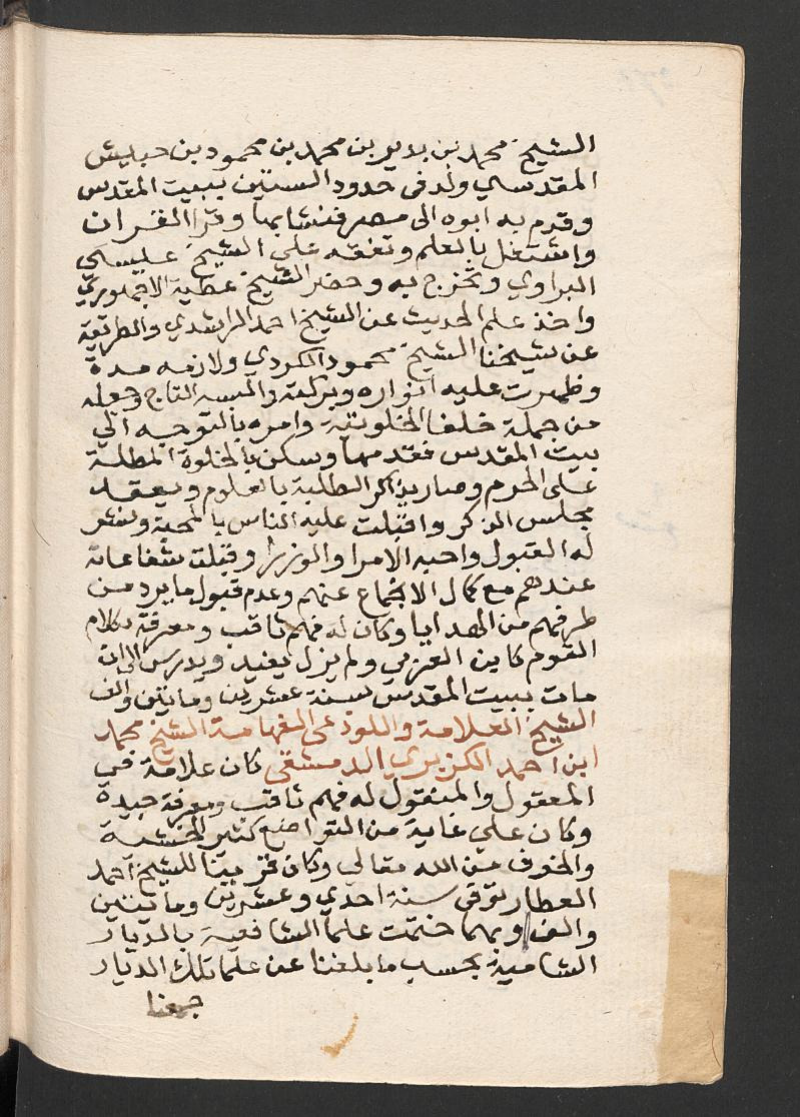 الشيخ محمد بن بدير بن محمد بن محمود بن حبيش
المقدسي ولد في حدود الستين ببيت المقدس
وقدم به ابوه الى مصر فنشا بها وقرا القران
واشتغل بالعلم وتفقه على الشيخ عيسى
البراوي وتخرج به وحضر الشيخ عطية الاجهوري
واخذ علم الحديث عن الشيخ احمد الراشدي والطريقة
عن شيخنا الشيخ محمود الكردي ولازمه مدة
وظهرت عليه انواره وبركته والبسه التاج وجعله
من جملة خلفا الخلوتية وامره بالتوجه الي
بيت المقدس فقدمها وسكن بالخلوة المطلة
على الحرم وصار يذاكر الطلبة بالعلوم ويعقد
مجلس الذكر واقبلت عليه الناس بالمحبة ونشر
له القبول واحبه الامرا والوزرا وقبلت شفاعاته
عندهم مع كمال الانجماع عنهم وعدم قبول ما يرد من
طرفهم من الهدايا وكان له فهم ثاقب ومعرفة بكلام
القوم كابن العربي ولم يزل يفيد ويدرس الى ان
مات ببيت المقدس سنة عشرين وماتين والف
الشيخ العلامة واللوذعي الفهامة الشيخ محمد
ابن احمد الكزبري الدمشقي كان علامة في
المعقول والمنقول له فهم ثاقب ومعرفة جيدة
وكان علي غاية من التواضع كثير الخشية
والخوف من الله تعالي وكان قرينا للشيخ احمد
العطار توفي سنة احدي وعشرين وماتين
والف وبهما ختمت علما الشافعية بالديار
الشامية بحسب ما بلغنا عن علما تلك الديار
جمعنا